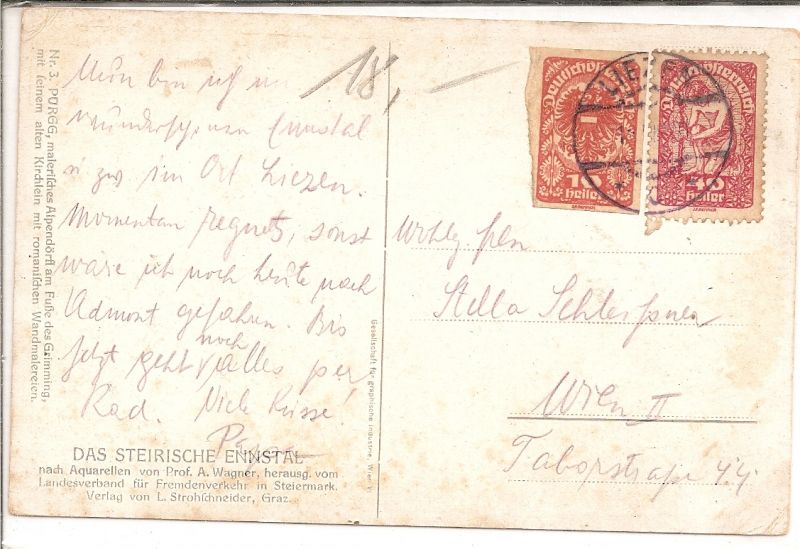 Nun bin ich in
wunderschönen Ennstal
u zw. im Ort Liezen.
Momentan regnets, sonst
wäre ich noch heute nach
Admont gefahren. Bis
jetzt geht noch alles per
Rad. Viele Küsse
18,
DAS STEIRISCHE ENNSTAL
nach Aquarellen von Prof. A. Wagner, herausg. vom
Landesverband für Fremdenverkehr in Steiermark.
Verlag von L. Strohschneider, Graz.
Nr. 3. PÜRGG, malerisches Alpendörfl am Fuße des Grimming,
mit seinem alten Kirchlein mit romanischen Wandmalereien.
Gesellschaft für graphische Industrie, Wien V
Deutschösterreich
10
Heller
Deutschösterreich
Heller
LIEZEN
Stella
Wien II
Taborstraße 44